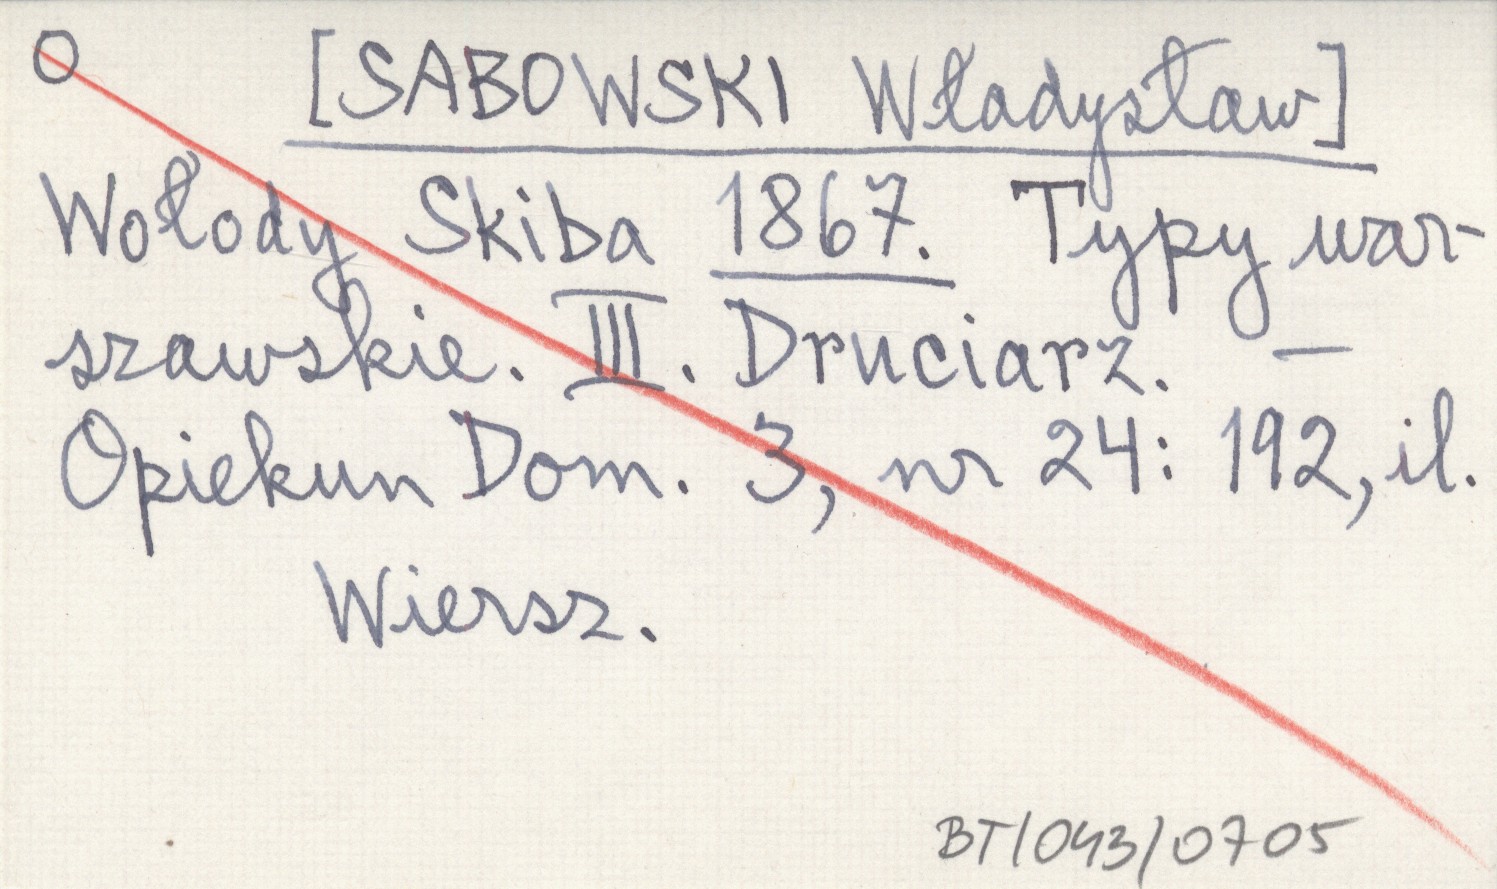 O [SABOWSKI Władysław]
Wołody Skiba 1867. Typy war-
szawskie. III. Druciarz. —
Opiekun Dom. 3, nr 24: 192, il.
Wiersz.
BT/043/0705